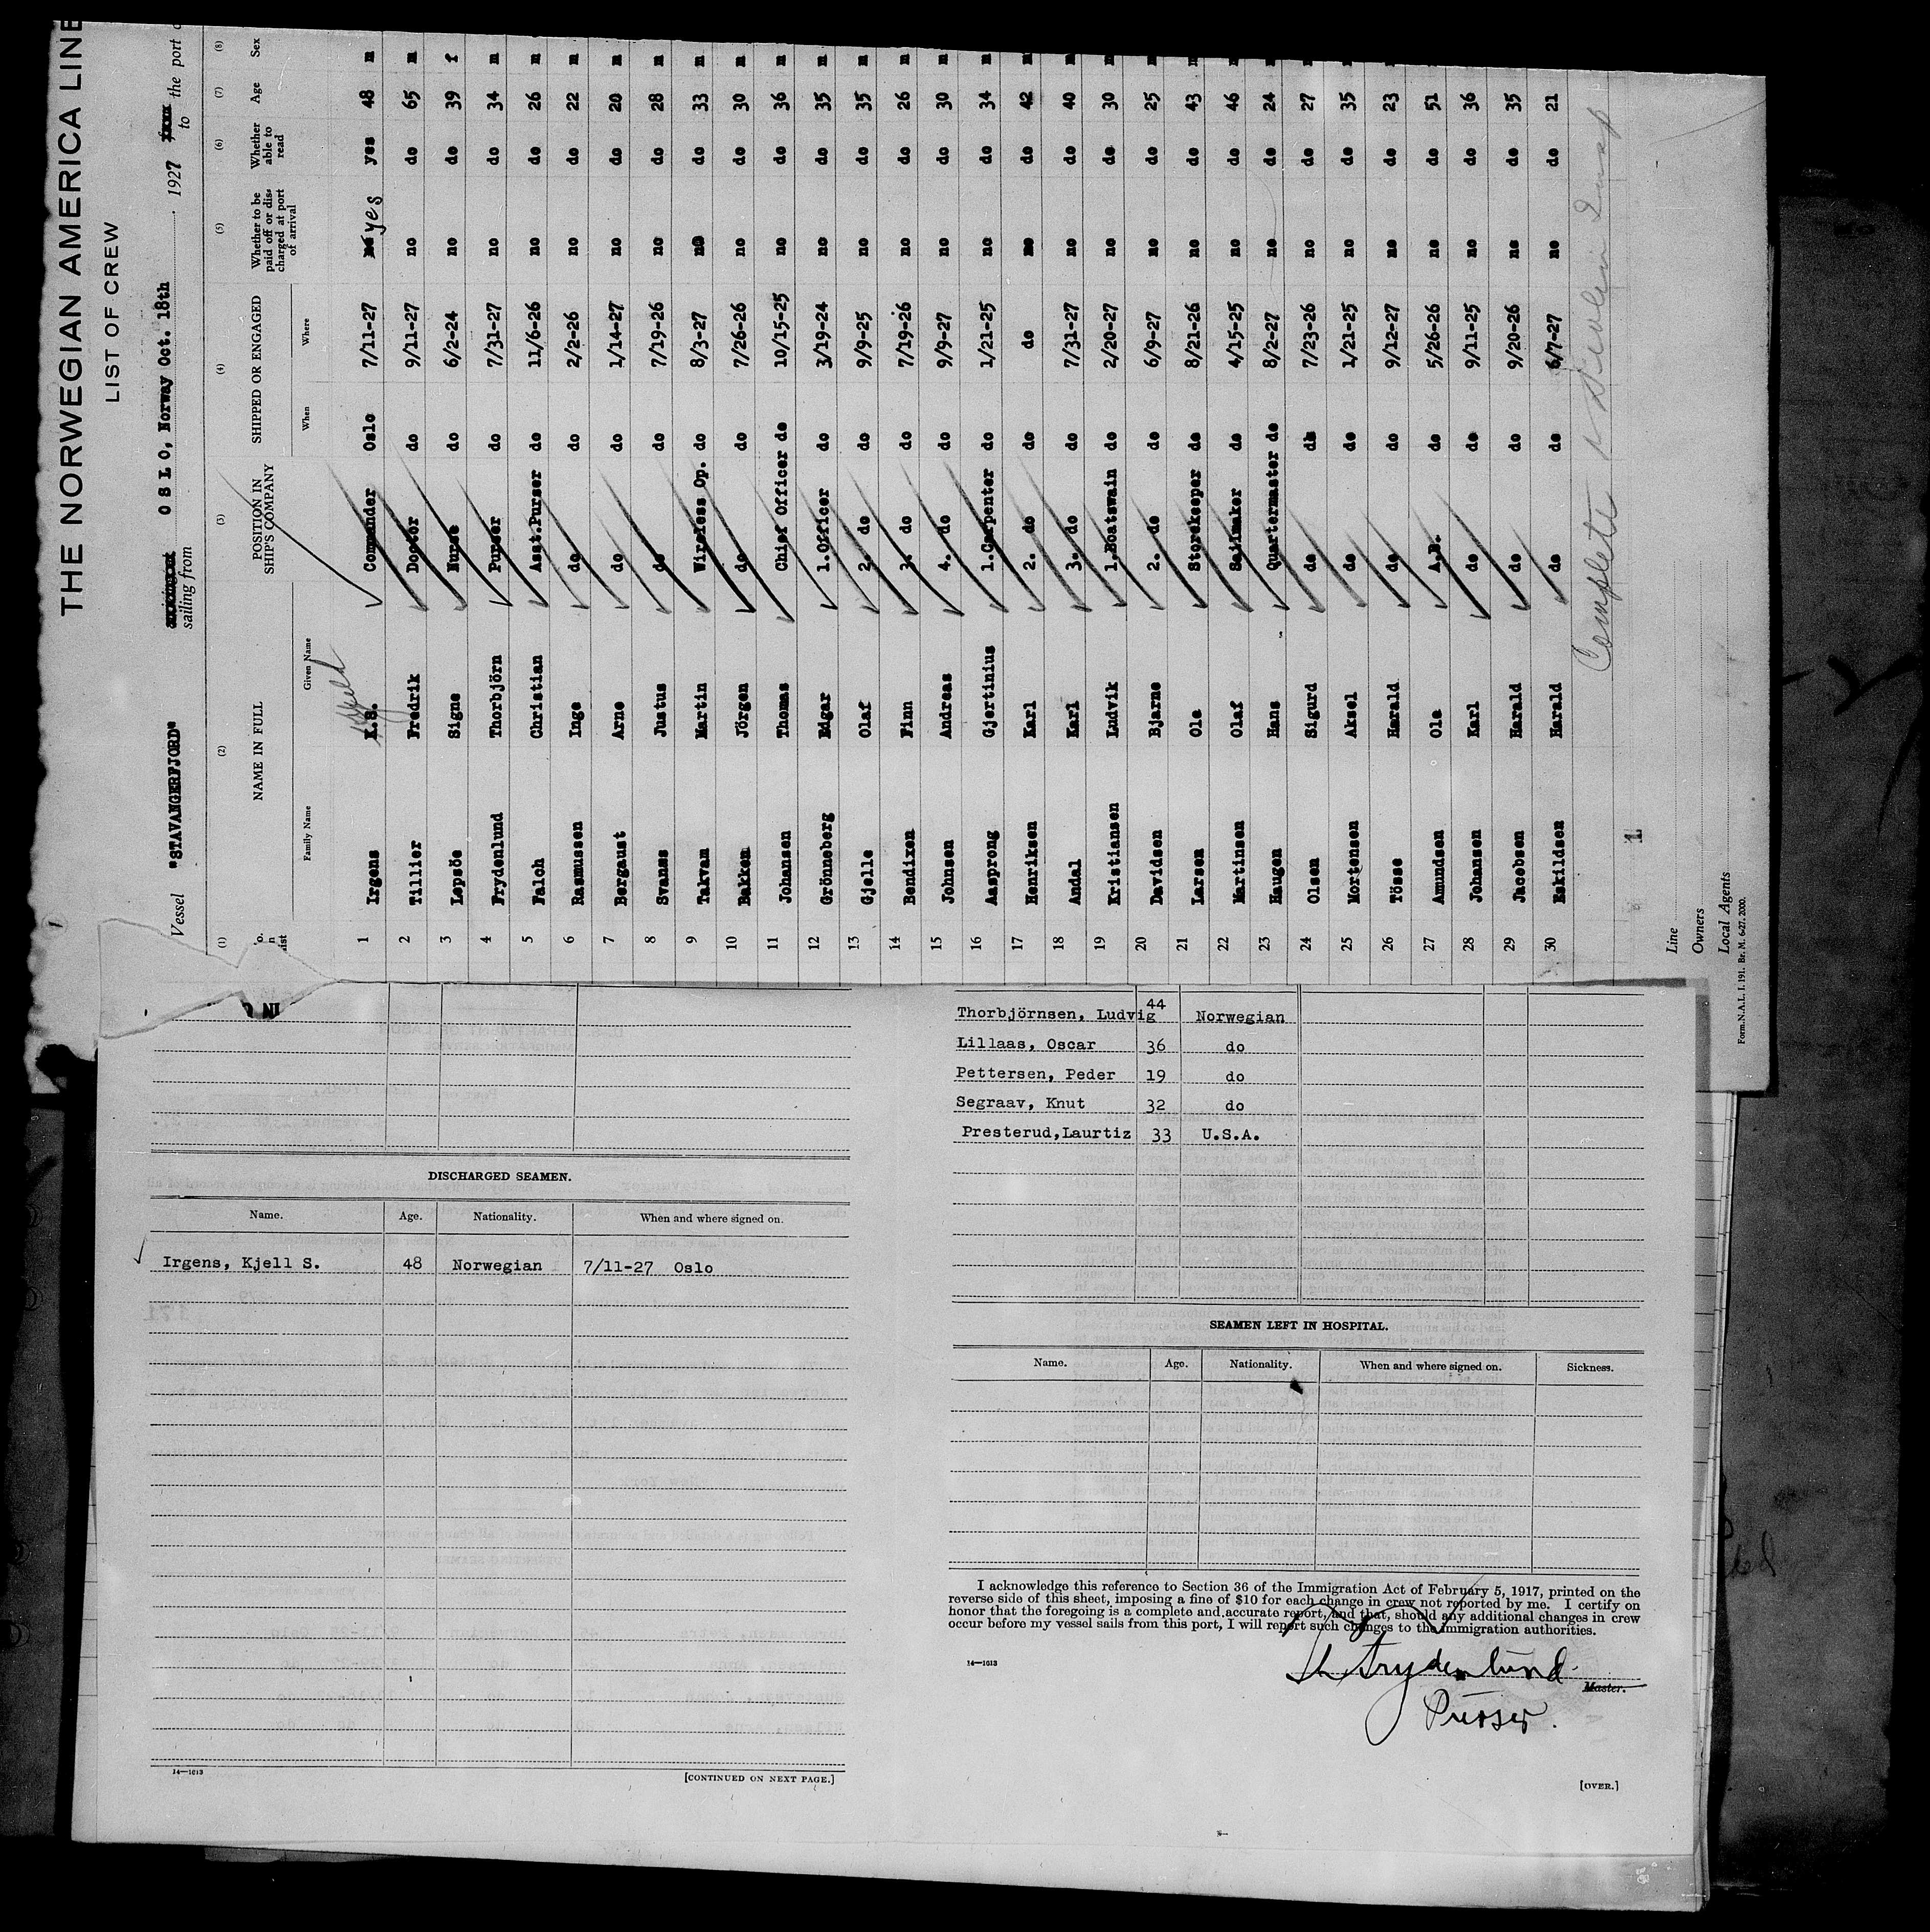 THE NORWEGIAN AMERICA LINE
LIST OF CREW
Vessel "STAVANGERFJORD" sailing from O S L O, Norway Oct. 18th 1927 to the port
(1) (2) (3) (4) (5) (6) (7) (8)
NAME IN FULL POSITION IN SHIP'S COMPANY SHIPPED OR ENGAGED Whether to be paid off or discharged at port of arrival Whether able to read Age Sex
Family Name Given Name When Where
1 Irgens K.S. Commander Oslo 7/11-27 yes yes 48 m
2 Tillier Fredrik Doctor do 9/11-27 no do 65 m
3 Lepsöe Signe Nurse do 6/2-24 no do 39 f
4 Frydenlund Thorbjörn Purser do 7/31-27 no do 34 m
5 Falch Christian Asst.Purser do 11/6-26 no do 26 m
6 Rasmussen Inge do do 2/2-26 no do 22 m
7 Bergaust Arne do do 1/14-27 no do 20 m
8 Svanæs Justus do do 7/19-26 no do 28 m
9 Takvam Martin Wireless Op. do 8/3-27 no do 33 m
10 Bakken Jörgen do do 7/26-26 no do 30 m
11 Johansen Thomas Chief Officer do 10/15-25 no do 36 m
12 Grönneberg Edgar 1.Officer do 3/19-24 no do 35 m
13 Gjelle Olaf 2. do do 9/9-25 no do 35 m
14 Bendixen Finn 3. do do 7/19-26 no do 26 m
15 Johnsen Andreas 4. do do 9/9-27 no do 30 m
16 Aasprong Gjertinius 1.Carpenter do 1/21-25 no do 34 m
17 Henriksen Karl 2. do do do no do 42 m
18 Andal Karl 3. do do 7/31-27 no do 40 m
19 Kristiansen Ludvik 1.Boatswain do 2/20-27 no do 30 m
20 Davidsen Bjarne 2. do do 6/9-27 no do 25 m
21 Larsen Ole Storekeeper do 8/21-26 no do 43 m
22 Martinsen Olaf Sailmaker do 4/15-25 no do 46 m
23 Haugen Hans Quartermaster do 8/2-27 no do 24 m
24 Olsen Sigurd do do 7/23-26 no do 27
25 Mortensen Aksel do do 1/21-25 no do 35
26 Tösse Harald do do 9/12-27 no do 23
27 Amundsen Ole A.B. do 5/26-26 no do 51
28 Johansen Karl do do 9/11-25 no do 36
29 Jacobsen Harald do do 9/20-26 no do 35
30 Eskildsen Harald do do 6/7-27 no do 21
Complete
1
Line
Owners
Local Agents
Form.N.A.L. I. 191. Br. M. 6-27. 2000.
DISCHARGED SEAMEN.
Name. Age. Nationality. When and where signed on.
Irgens, Kjell S. 48 Norwegian 7/11-27 Oslo
14—1613
[CONTINUED ON NEXT PAGE.]
Thorbjörnsen, Ludvig 44 Norwegian
Lillaas, Oscar 36 do
Pettersen, Peder 19 do
Segraav, Knut 32 do
Presterud,Laurtiz 33 U.S.A.
SEAMEN LEFT IN HOSPITAL.
Name. Age. Nationality. When and where signed on. Sickness.
I acknowledge this reference to Section 36 of the Immigration Act of February 5, 1917, printed on the
reverse side of this sheet, imposing a fine of $10 for each change in crew not reported by me. I certify on
honor that the foregoing is a complete and accurate report, and that, should any additional changes in crew
occur before my vessel sails from this port, I will report such changes to the immigration authorities.
14—1613
Th Frydenlund
Master.
Purser.
[OVER.]